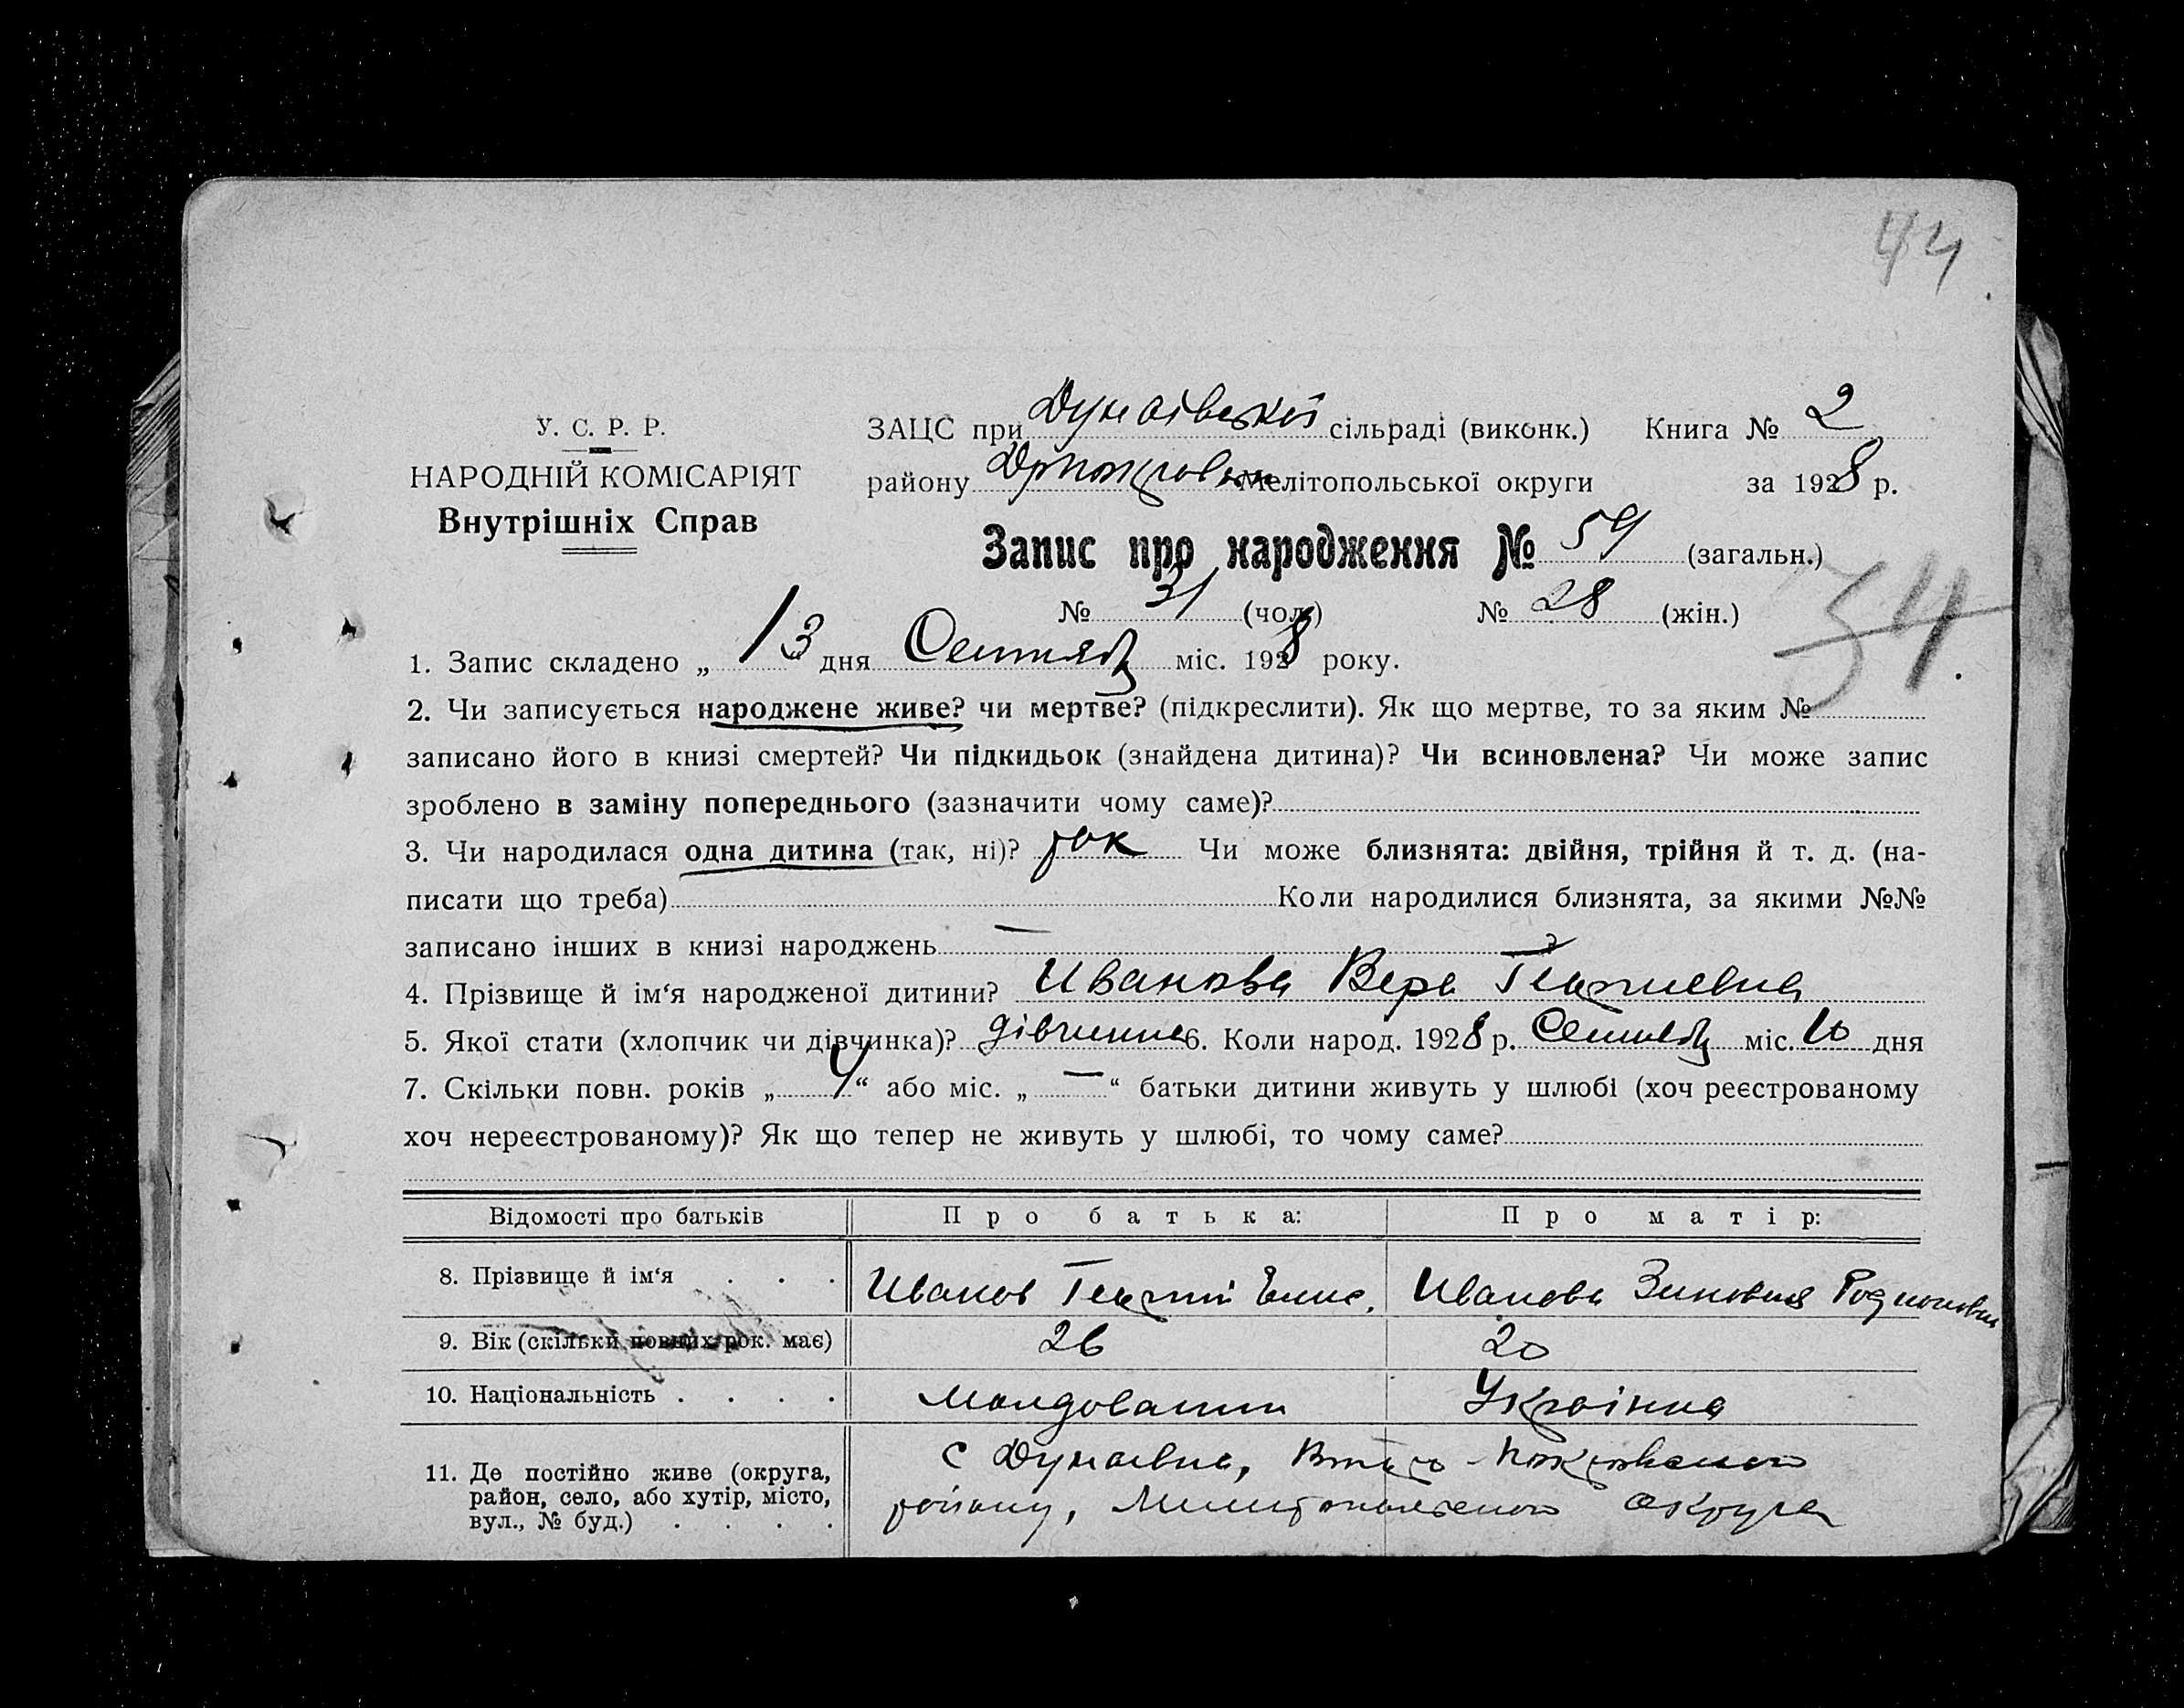 44
У. С. Р. Р.
НАРОДНІЙ КОМІСАРІЯТ
Внутрішніх Справ
ЗАЦС при Дунаївській сільраді (виконк.) Книга № 2
району Мелітопольської округи за 1928 р.
Запис про народження № 59 (загальн.)
№ 31 (чол.) № 28 (жін.)
34
1. Запис складено „ 13 дня Сентяб міс. 1928 року.
2. Чи записується народжене живе? чи мертве? (підкреслити). Як що мертве, то за яким №
записано його в книзі смертей? Чи підкидьок (знайдена дитина)? Чи всиновлена? Чи може запис
зроблено в заміну попереднього (зазначити чому саме)?
3. Чи народилася одна дитина (так, ні)? Чи може близнята: двійня, трійня й т. д. (на-
писати що треба) Коли народилися близнята, за якими №№
записано інших в книзі народжень — ?
4. Прізвище й ім‘я народженої дитини? Иванова Вера Георгиевна
5. Якої стати (хлопчик чи дівчинка)? дівчинка 6. Коли народ. 1928 р. Сентяб міс. 10 дня
7. Скільки повн. років „ 4 “ або міс. „ — “ батьки дитини живуть у шлюбі (хоч реєстрованому
хоч нереєстрованому)? Як що тепер не живуть у шлюбі, то чому саме?
Відомості про батьків Про батька: Про матір:
8. Прізвище й ім‘я . . . Иванов Георгий Иванова Зиновия Родионовна
9. Вік (скільки повних рок. має) 26 20
10. Національність . . . . Молдованин Українка
11. Де постійно живе (округа,
район, село, або хутір, місто,
вул., № буд.) . . . .
с Дунаевка, Покровского
району, Мелитопольского округа